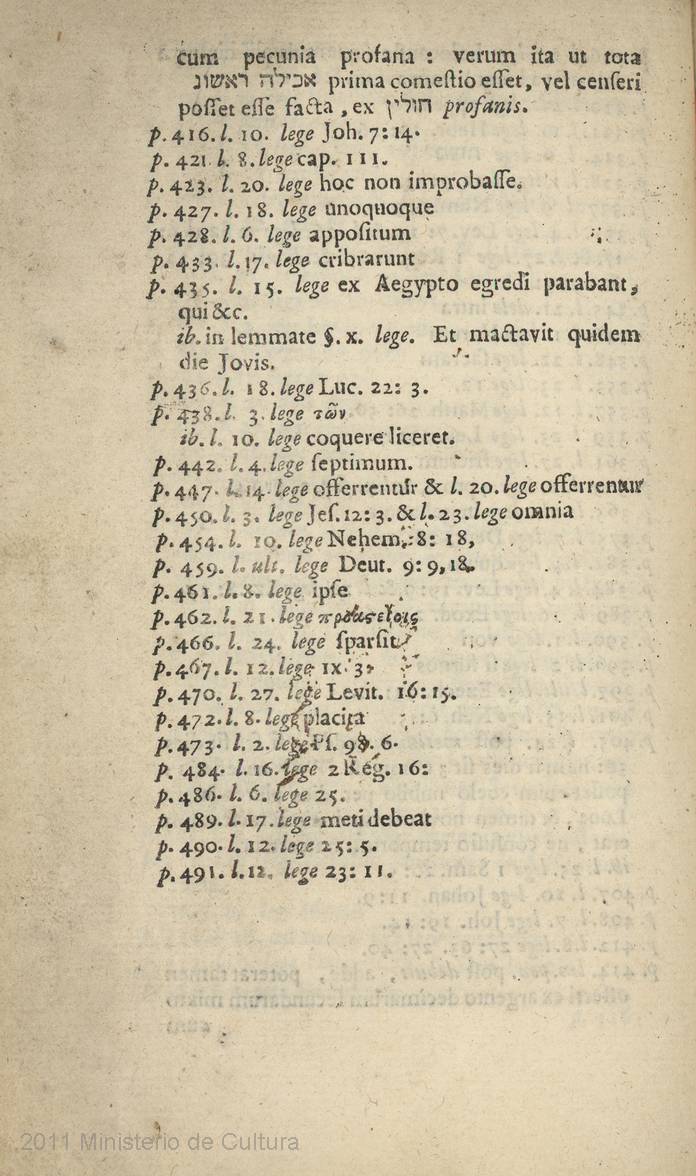 cum pecunia profana : verum ita ut tota
אכילה ראשונ prima comestio esset, vel censeri
posset esse facta, ex חולין profanis.
p. 416. l. 10. lege Joh. 7: 14.
p. 421. l. 8. lege cap. III.
p. 423. l. 20. lege hoc non improbasse.
p. 427. l. 18. lege unoquoque
p. 428. l. 6. lege appositum
p. 433. l. 17. lege cribrarunt
p. 435. l. 15. lege ex Aegypto egredi parabant,
qui &c.
ib. in lemmate §. x. lege. Et mactavit quidem
die Jovis.
p. 436. l. 18. lege Luc. 22: 3.
p. 438. l. 3. lege τῶν
ib. l. 10. lege coquere liceret.
p. 442. l. 4. lege septimum.
p. 447. l. 14. lege offerrentur & l. 20. lege offerrentur
p. 450. l. 3. lege Jes. 12: 3. & l. 23. lege omnia
p. 454. l. 10. lege Nehem. 8: 18,
p. 459. l. ult. lege Deut. 9: 9, 18.
p. 461. l. 8. lege ipse
p. 462. l. 21. lege
p. 466. l. 24. lege sparsit
p. 467. l. 12. lege IX. 3.
p. 470. l. 27. lege Levit. 16: 15.
p. 472. l. 8. lege placita
p. 473. l. 2. lege Ps. 6.
p. 484. l. 16. lege 2 Reg. 16:
p. 486. l. 6. lege 25.
p. 489. l. 17. lege meti debeat
p. 490. l. 12. lege 25: 5.
p. 491. l. 12. lege 23: 11.
2011 Ministerio de Cultura